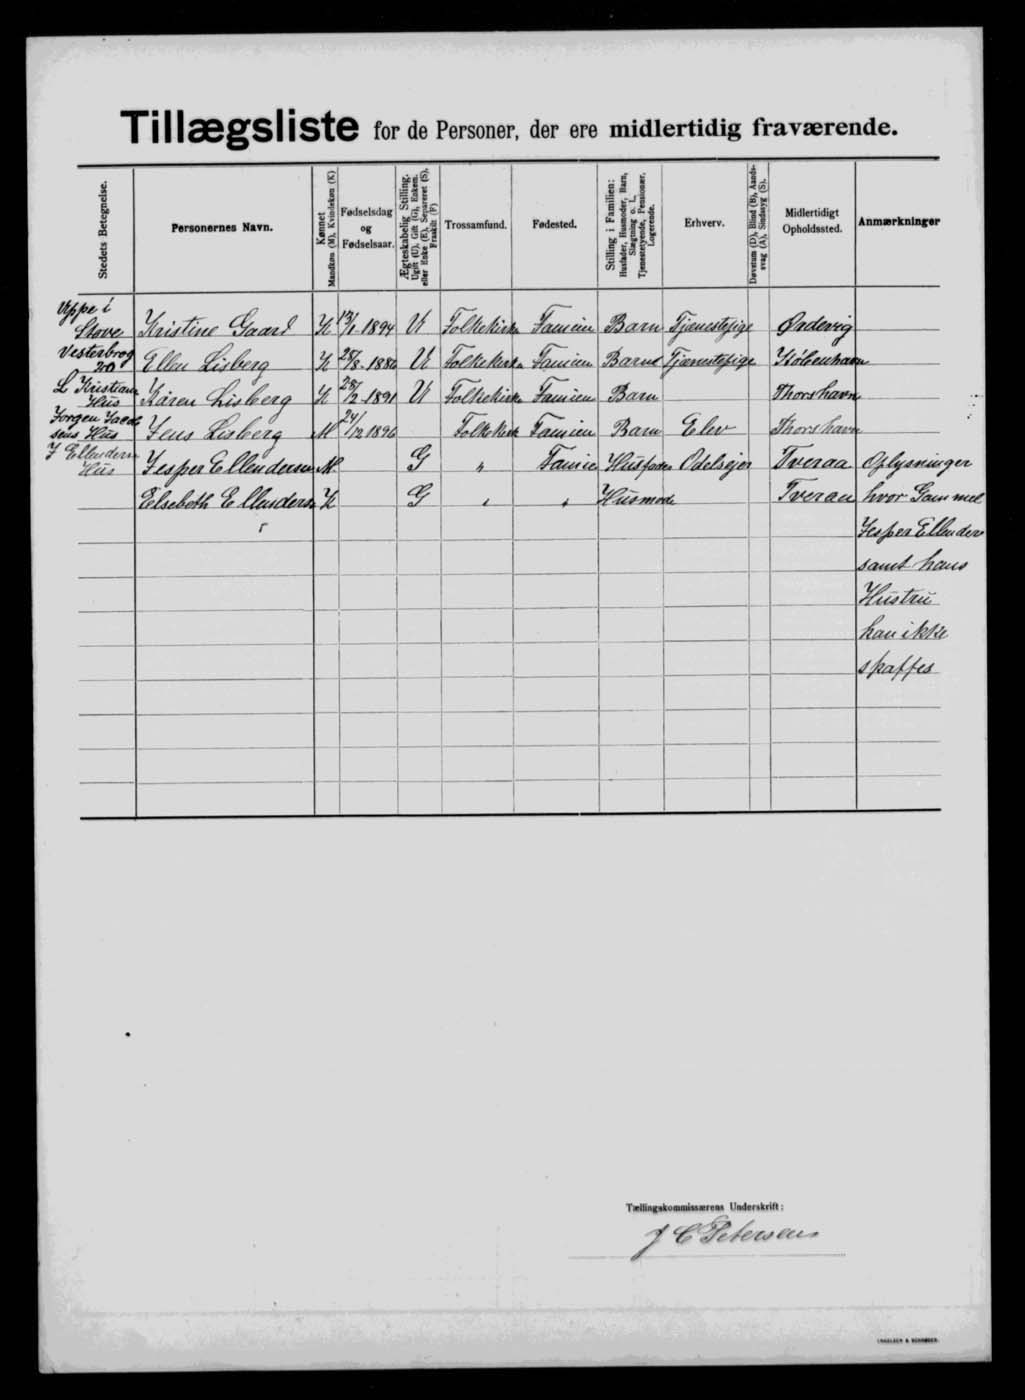 Tillægsliste for de Personer, der ere midlertidig fraværende.
Stedets Betegnelse.
Personernes Navn.
Kønnet
Mandkøn (M), Kvindekøn (K)
Fødselsdag
og
Fødselsaar.
Ægteskabelig Stilling.
Ugift (U), Gift (G), Enkem.
eller Enke (E), Separeret (S),
Fraskilt (F)
Trossamfund.
Fødested.
Stilling i Familien:
Husfader, Husmoder, Barn,
Slægtning o. l.
Tjenestetyende, Pensionær,
Logerende.
Erhverv.
Døvstum (D), Blind (B), Aands-
svag (A), Sindssyg (S).
Midlertidigt
Opholdssted.
Anmærkninger
Uppe i
Stove Kristine Gaard K 13/1 1894 U Folkekirke Famien Barn Tjenestepige Ördevig
Vesterbrog
20 Ellen Lisberg K 28/8 1886 U Folkekirke Famien Barn Tjenestepige Köbenhavn
L Kristians
Hus Karen Lisberg K 28/2 1891 U Folkekirke Famien Barn Thorshavn
Jorgen Jacob
sens Hus Jens Lisberg M 24/12 1896 Folkekirk Famien Barn Elev Thorshavn
J Ellenders
Hus Jesper Ellendersen M G " Famie Husfader Odelsejer Tveraa Oplysninger
Elsebeth Ellenders K G " " Husmode Tveraa hvor Gammel
Jesper Ellenders
samt hans
Hustru
kan ikke
skaffes
Tællingskommissærens Underskrift:
J C Petersen